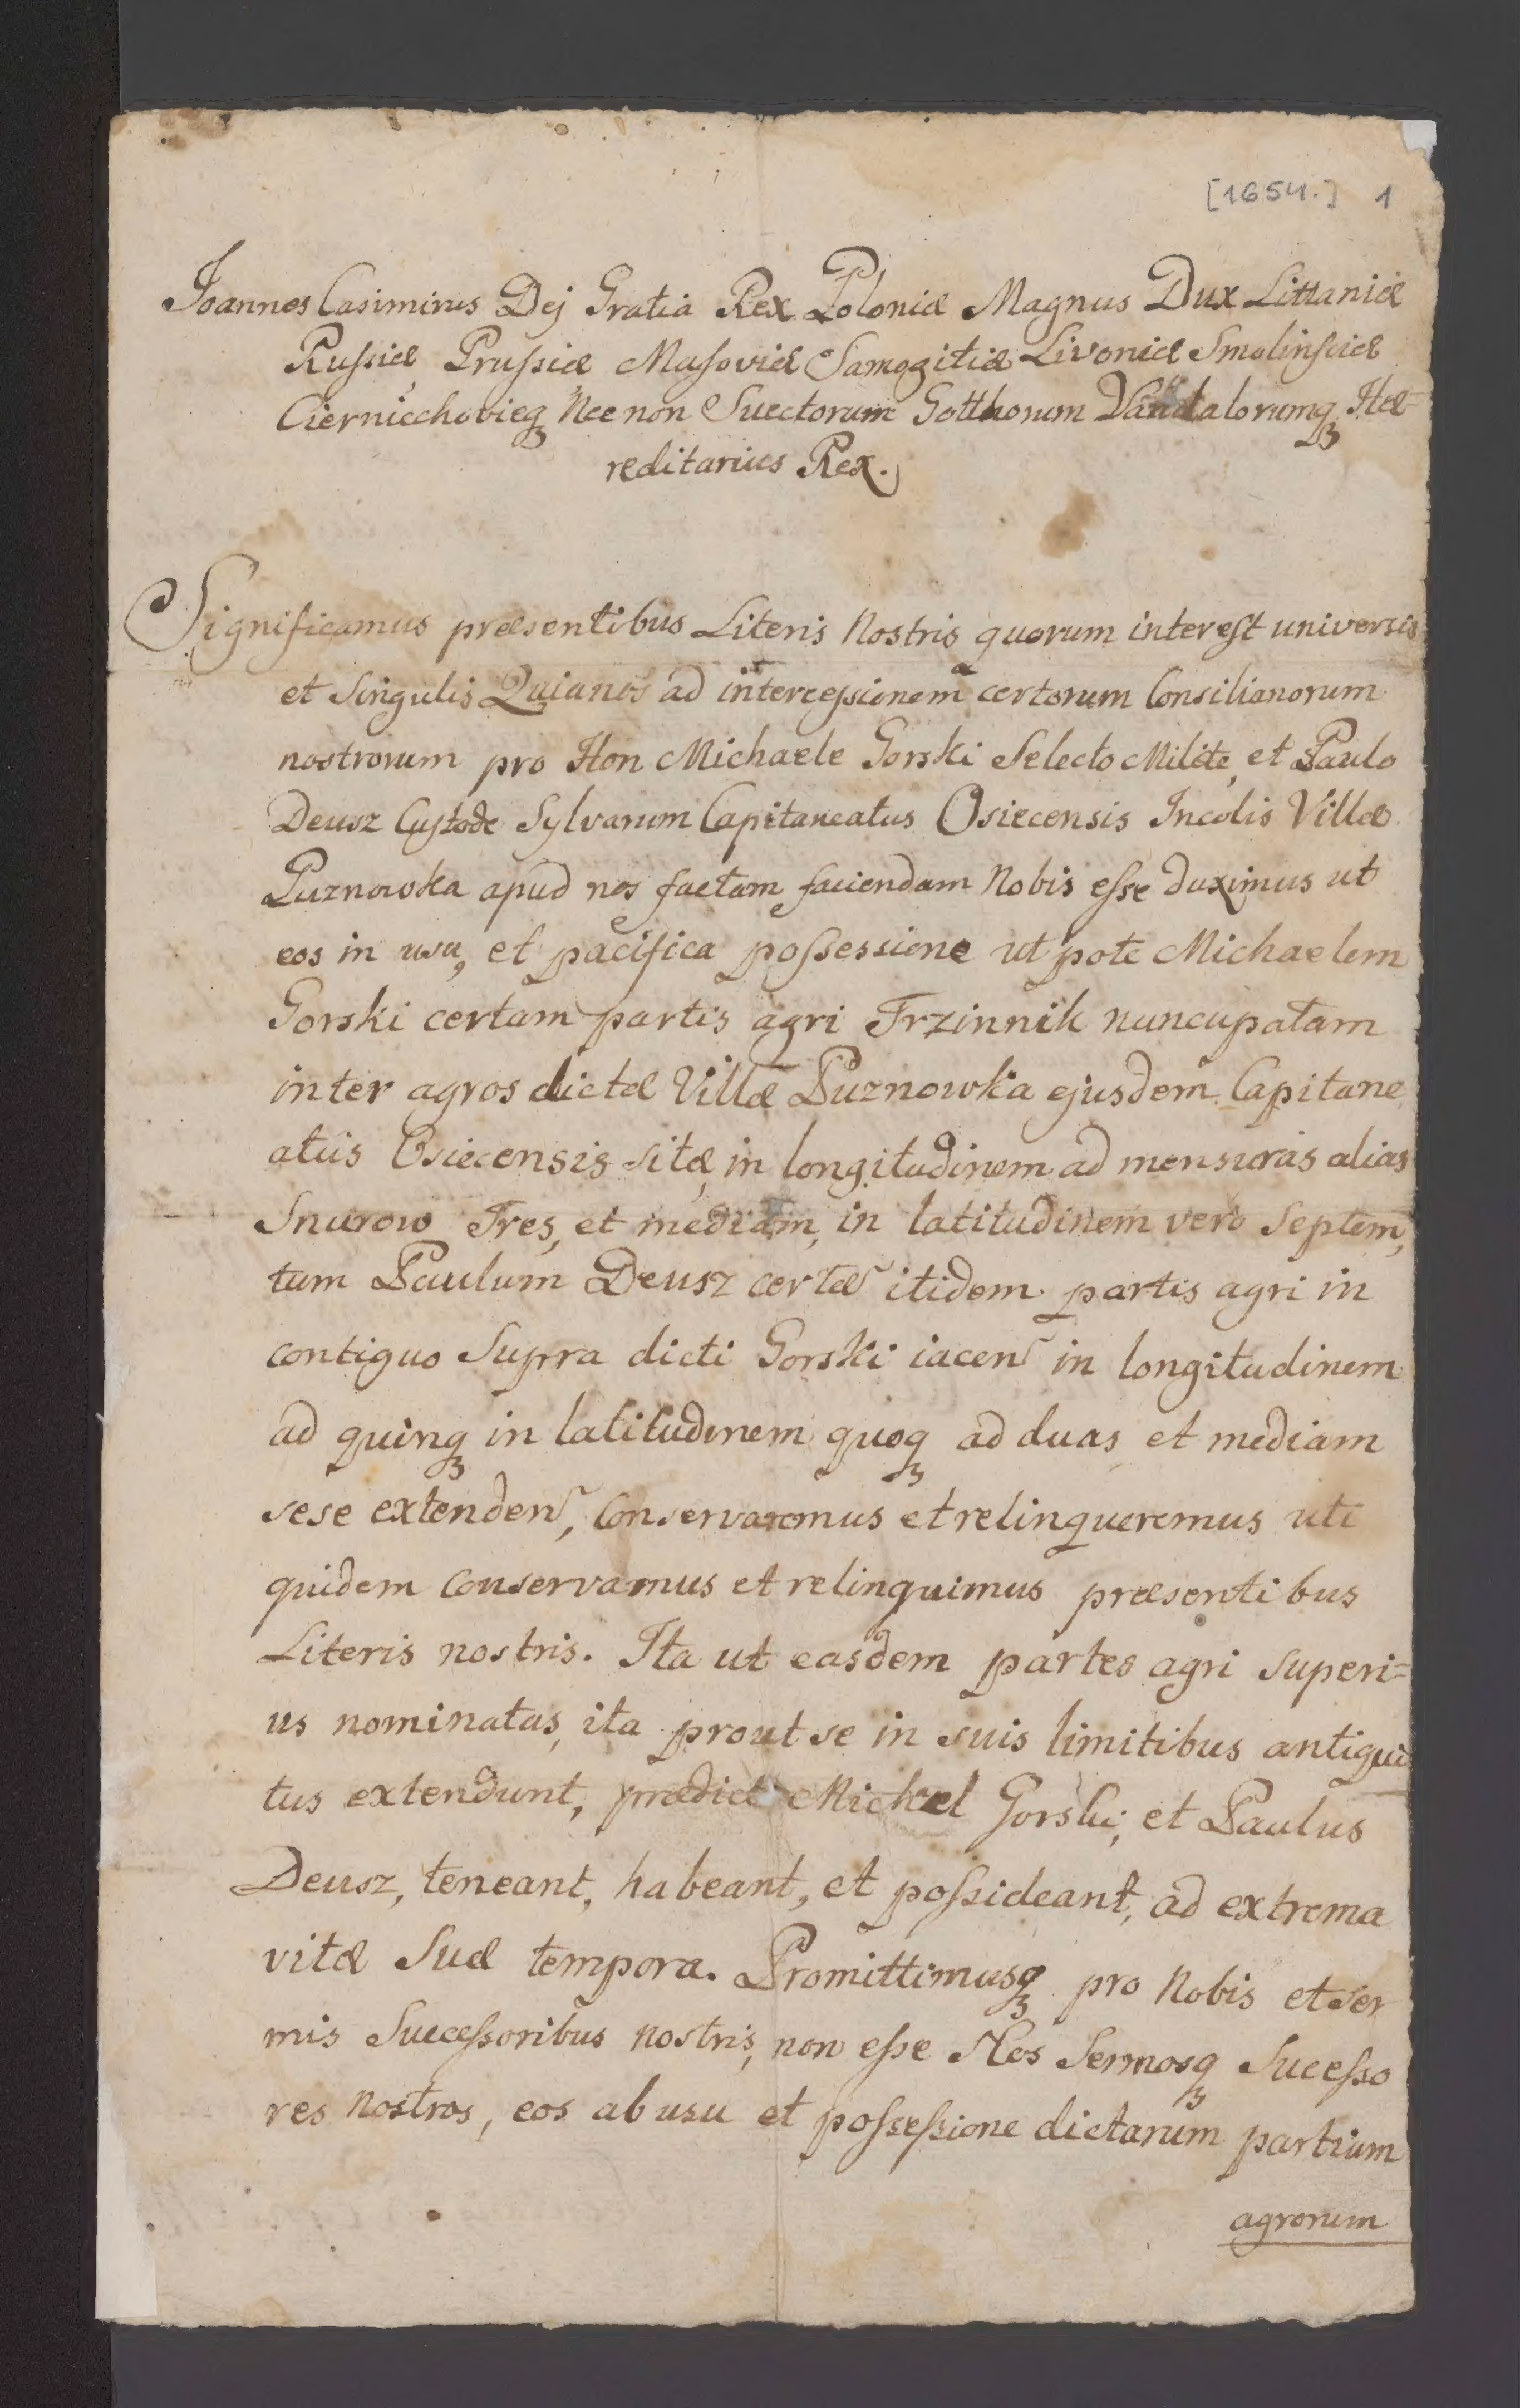 [1654.] 1
Joannes Casimirus Dej Gratia Rex Poloniæ Magnus Dux Littaniæ
Russiæ Prussiæ Masoviæ Samogitiæ Livoniæ Smolinsciæ
Cierniechovieq́₃ Nec non Suectorum Gotthorum Vandalorumq₃ Hæ=
reditarius Rex.
Significamus præsentibus Literis Nostris quorum interest universis
et Singulis Quia nos ad intercessionem certorum Consilianorum
nostrorum pro Hon Michaele Gorski Selecto Milite, et Paulo
Deusz Custode Sylvarum Capitaneatus Osiecensis Incolis Villæ
Puznowka apud nos factam faciendam Nobis esse duximus ut
eos in usu, et pacifica possessione ut pote Michaelem
Gorski certam partis agri Trzinnik nuncupatam
inter agros dictæ Villæ Puznowka ejusdem Capitane
atus Osiecensis sitæ, in longitudinem ad mensuras alias
Snurow Tres, et mediam, in latitudinem vero Septem,
tum Paulum Deusz certæ itidem partis agri in
contiguo Supra dicti Gorski iacen in longitudinem
ad quinq₃ in latitudinem quoq₃ ad duas et mediam
sese extenden, Conservaremus et relinqueremus uti
quidem conservamus et relinquimus præsentibus
Literis nostris. Ita ut easdem partes agri Superi=
us nominatas, ita prout se in suis limitibus antiqui
tus extendunt, prædict Michael Gorski, et Paulus
Deusz, teneant, habeant, et possideant, ad extrema
vitæ Suæ tempora. Promittimusq₃ pro Nobis et Ser
mis Successoribus nostris, non esse Nos Sermosq₃ Sucesso
res Nostros, eos ab usu et possessione dictarum partium
agrorum